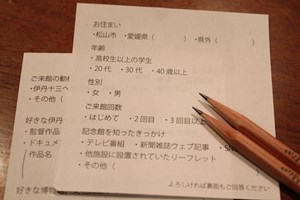 お住まい
・松山市 ・愛媛県（ ）・県外（ ）
年齢
・高校生以上の学生
・20代 ・30代 ・40歳以上
性別
・女 ・男
ご来館回数
・はじめて ・2回目 ・3回目以上
記念館を知ったきっかけ
・テレビ番組 ・新聞雑誌ウェブ記事 ・SN
・他施設に設置されていたリーフレット
・その他（
よろしければ裏面もご回答ください
ご来館の動
・伊丹十三
・その他（
好きな伊丹
・監督作品
・ドキュメ
（作品名
好きな博物